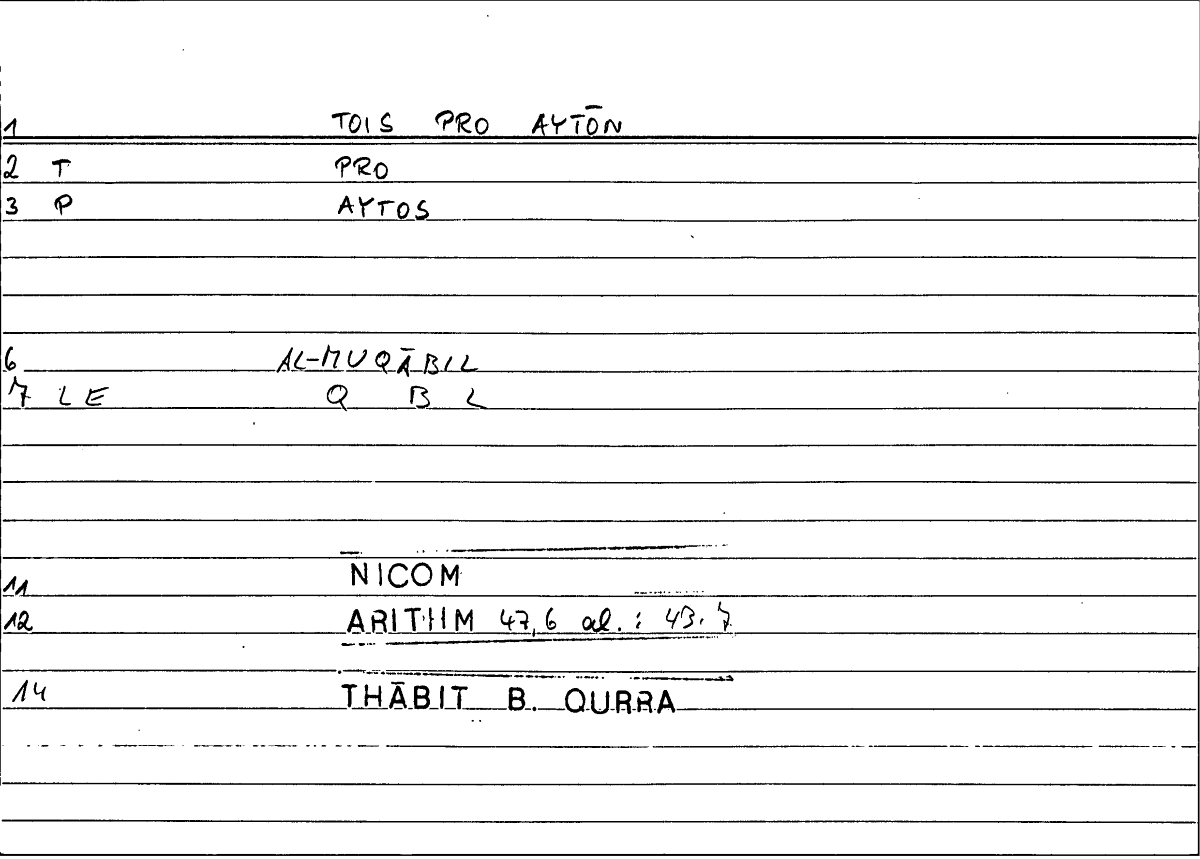 1 TOIS PRO AYTŌN
2 T PRO
3 P AYTOS
6 AL-MUQĀBIL
7 LE Q B L
11 NICOM
12 ARITHM 47,6 al. : 43.7
14 THĀBIT B. QURRA